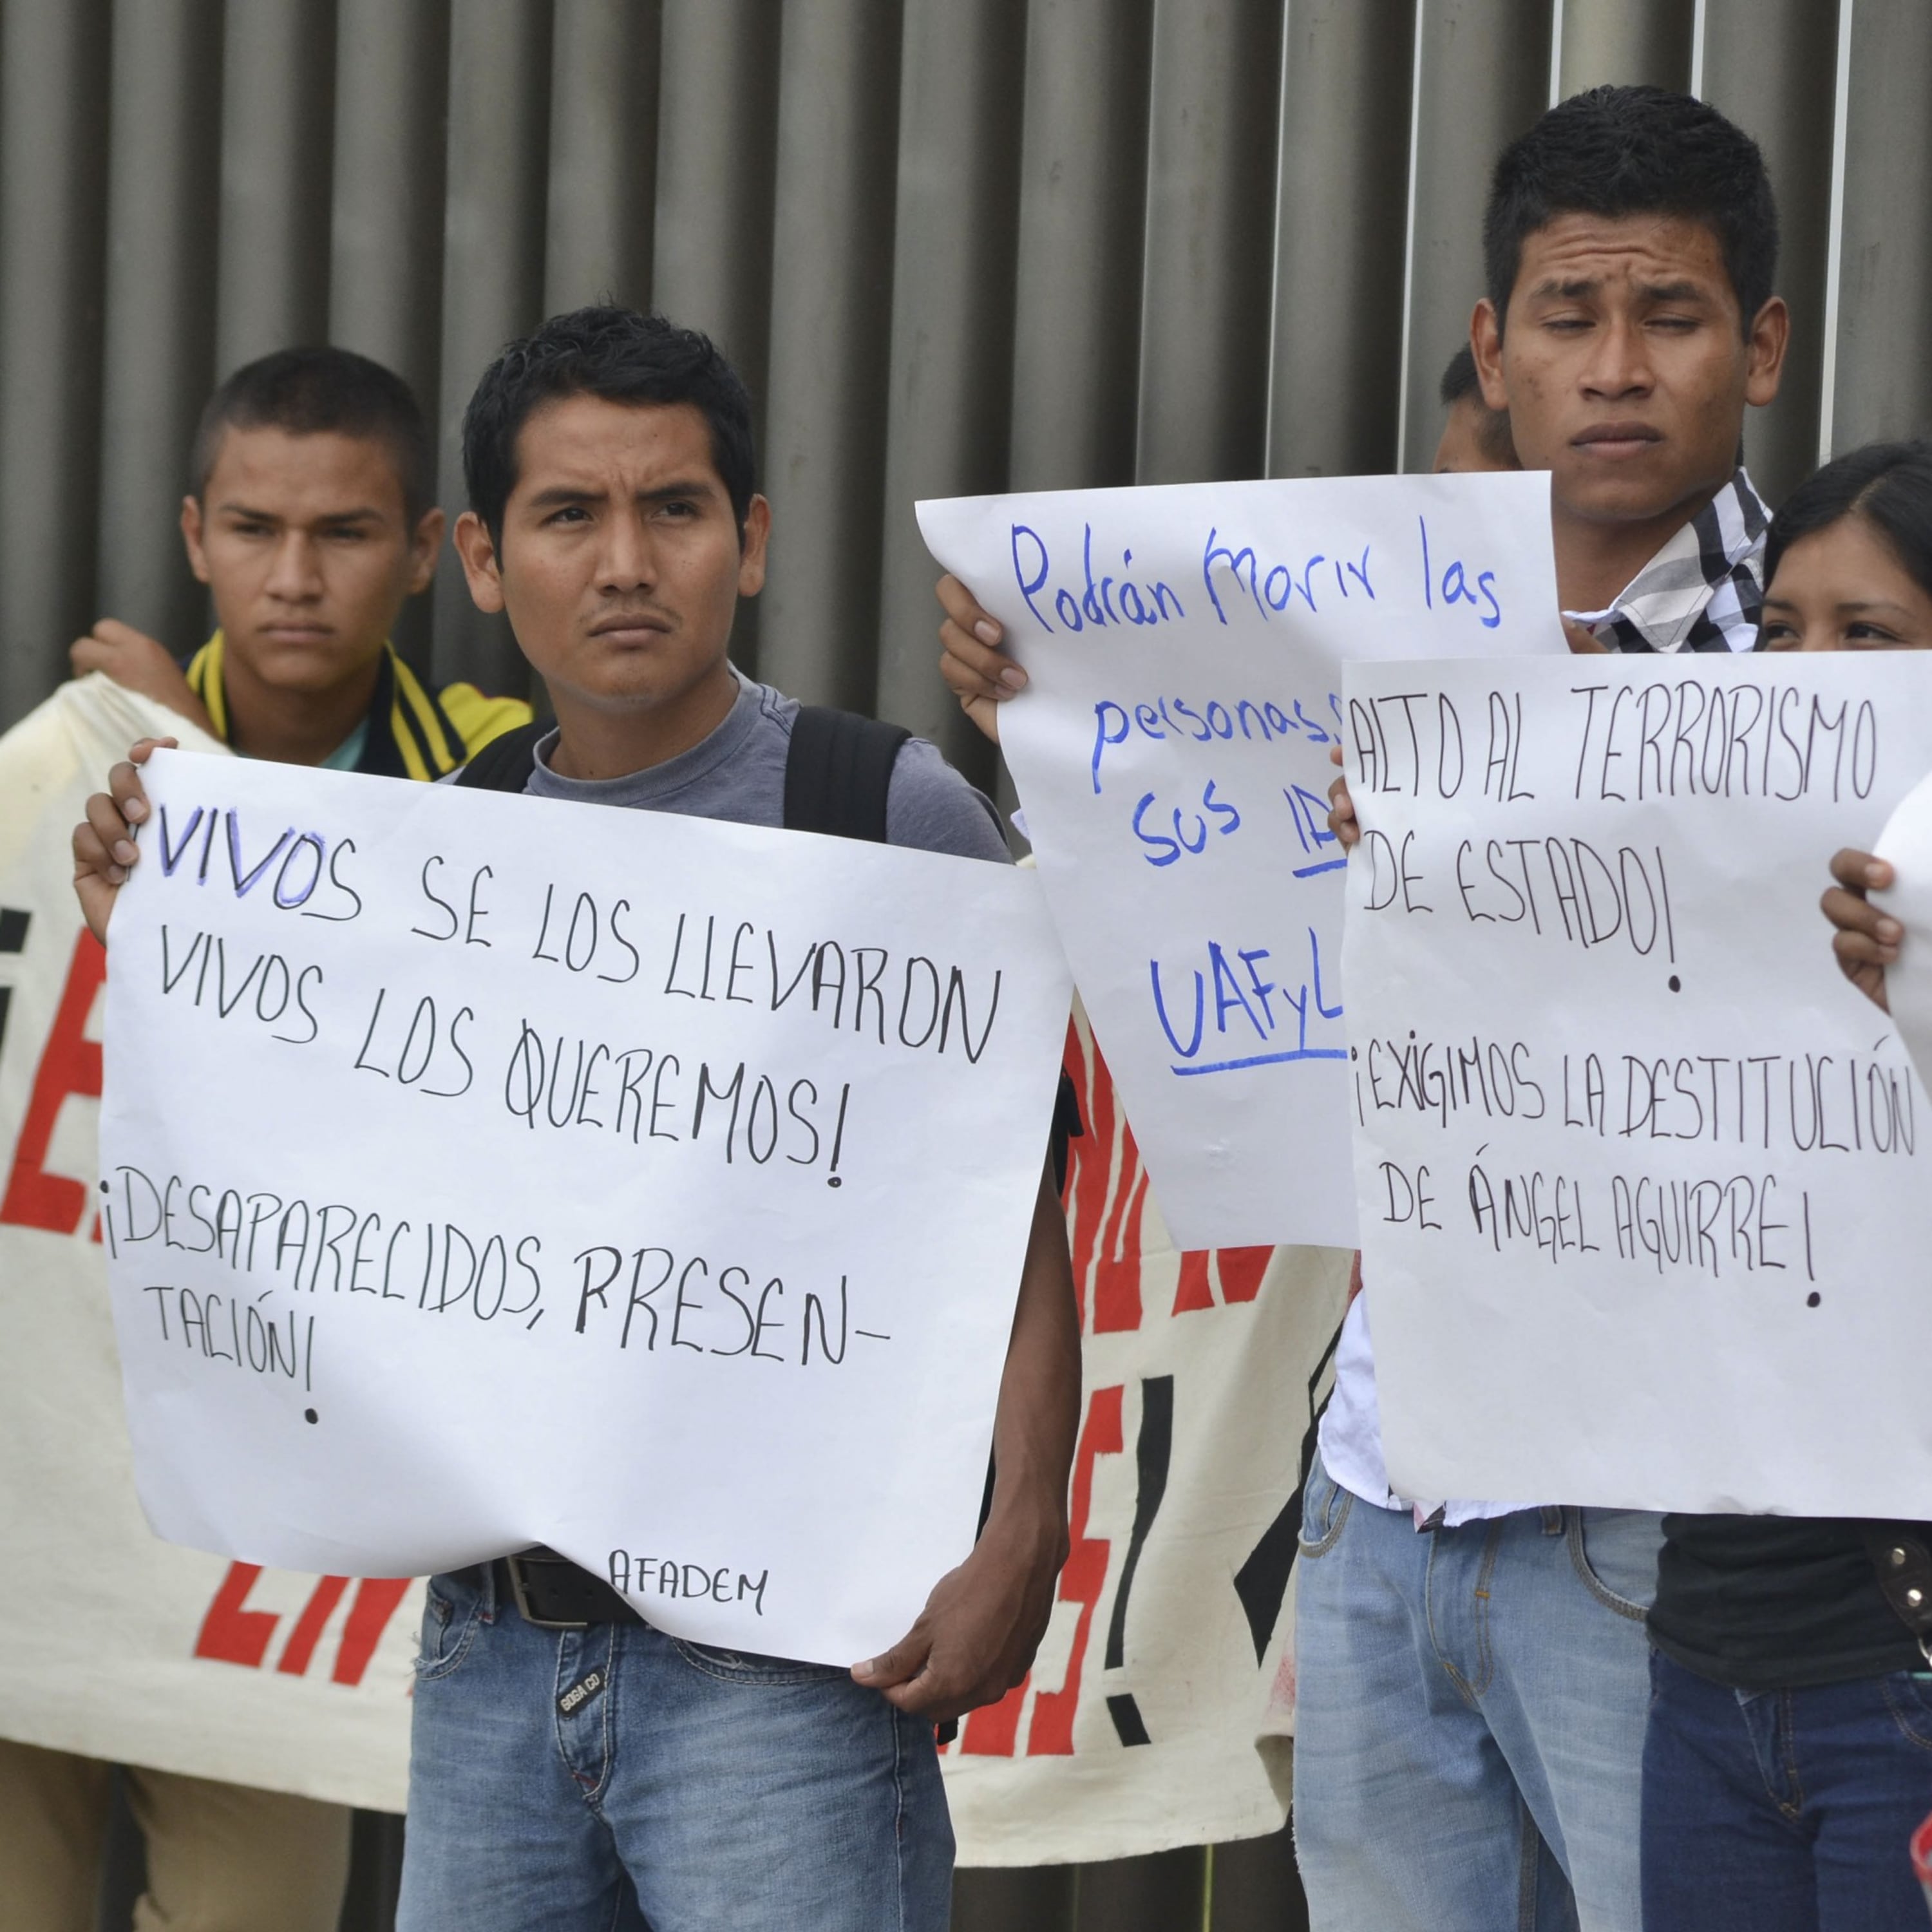 VIVOS SE LOS LLEVARON
VIVOS LOS QUEREMOS!
¡DESAPARECIDOS, PRESEN-
TACIÓN!
AFADEM
GOGA CO
Podrán morir las
personas,
sus
UAFyL
ALTO AL TERRORISMO
DE ESTADO!
¡EXIGIMOS LA DESTITUCIÓN
DE ÁNGEL AGUIRRE!
EN